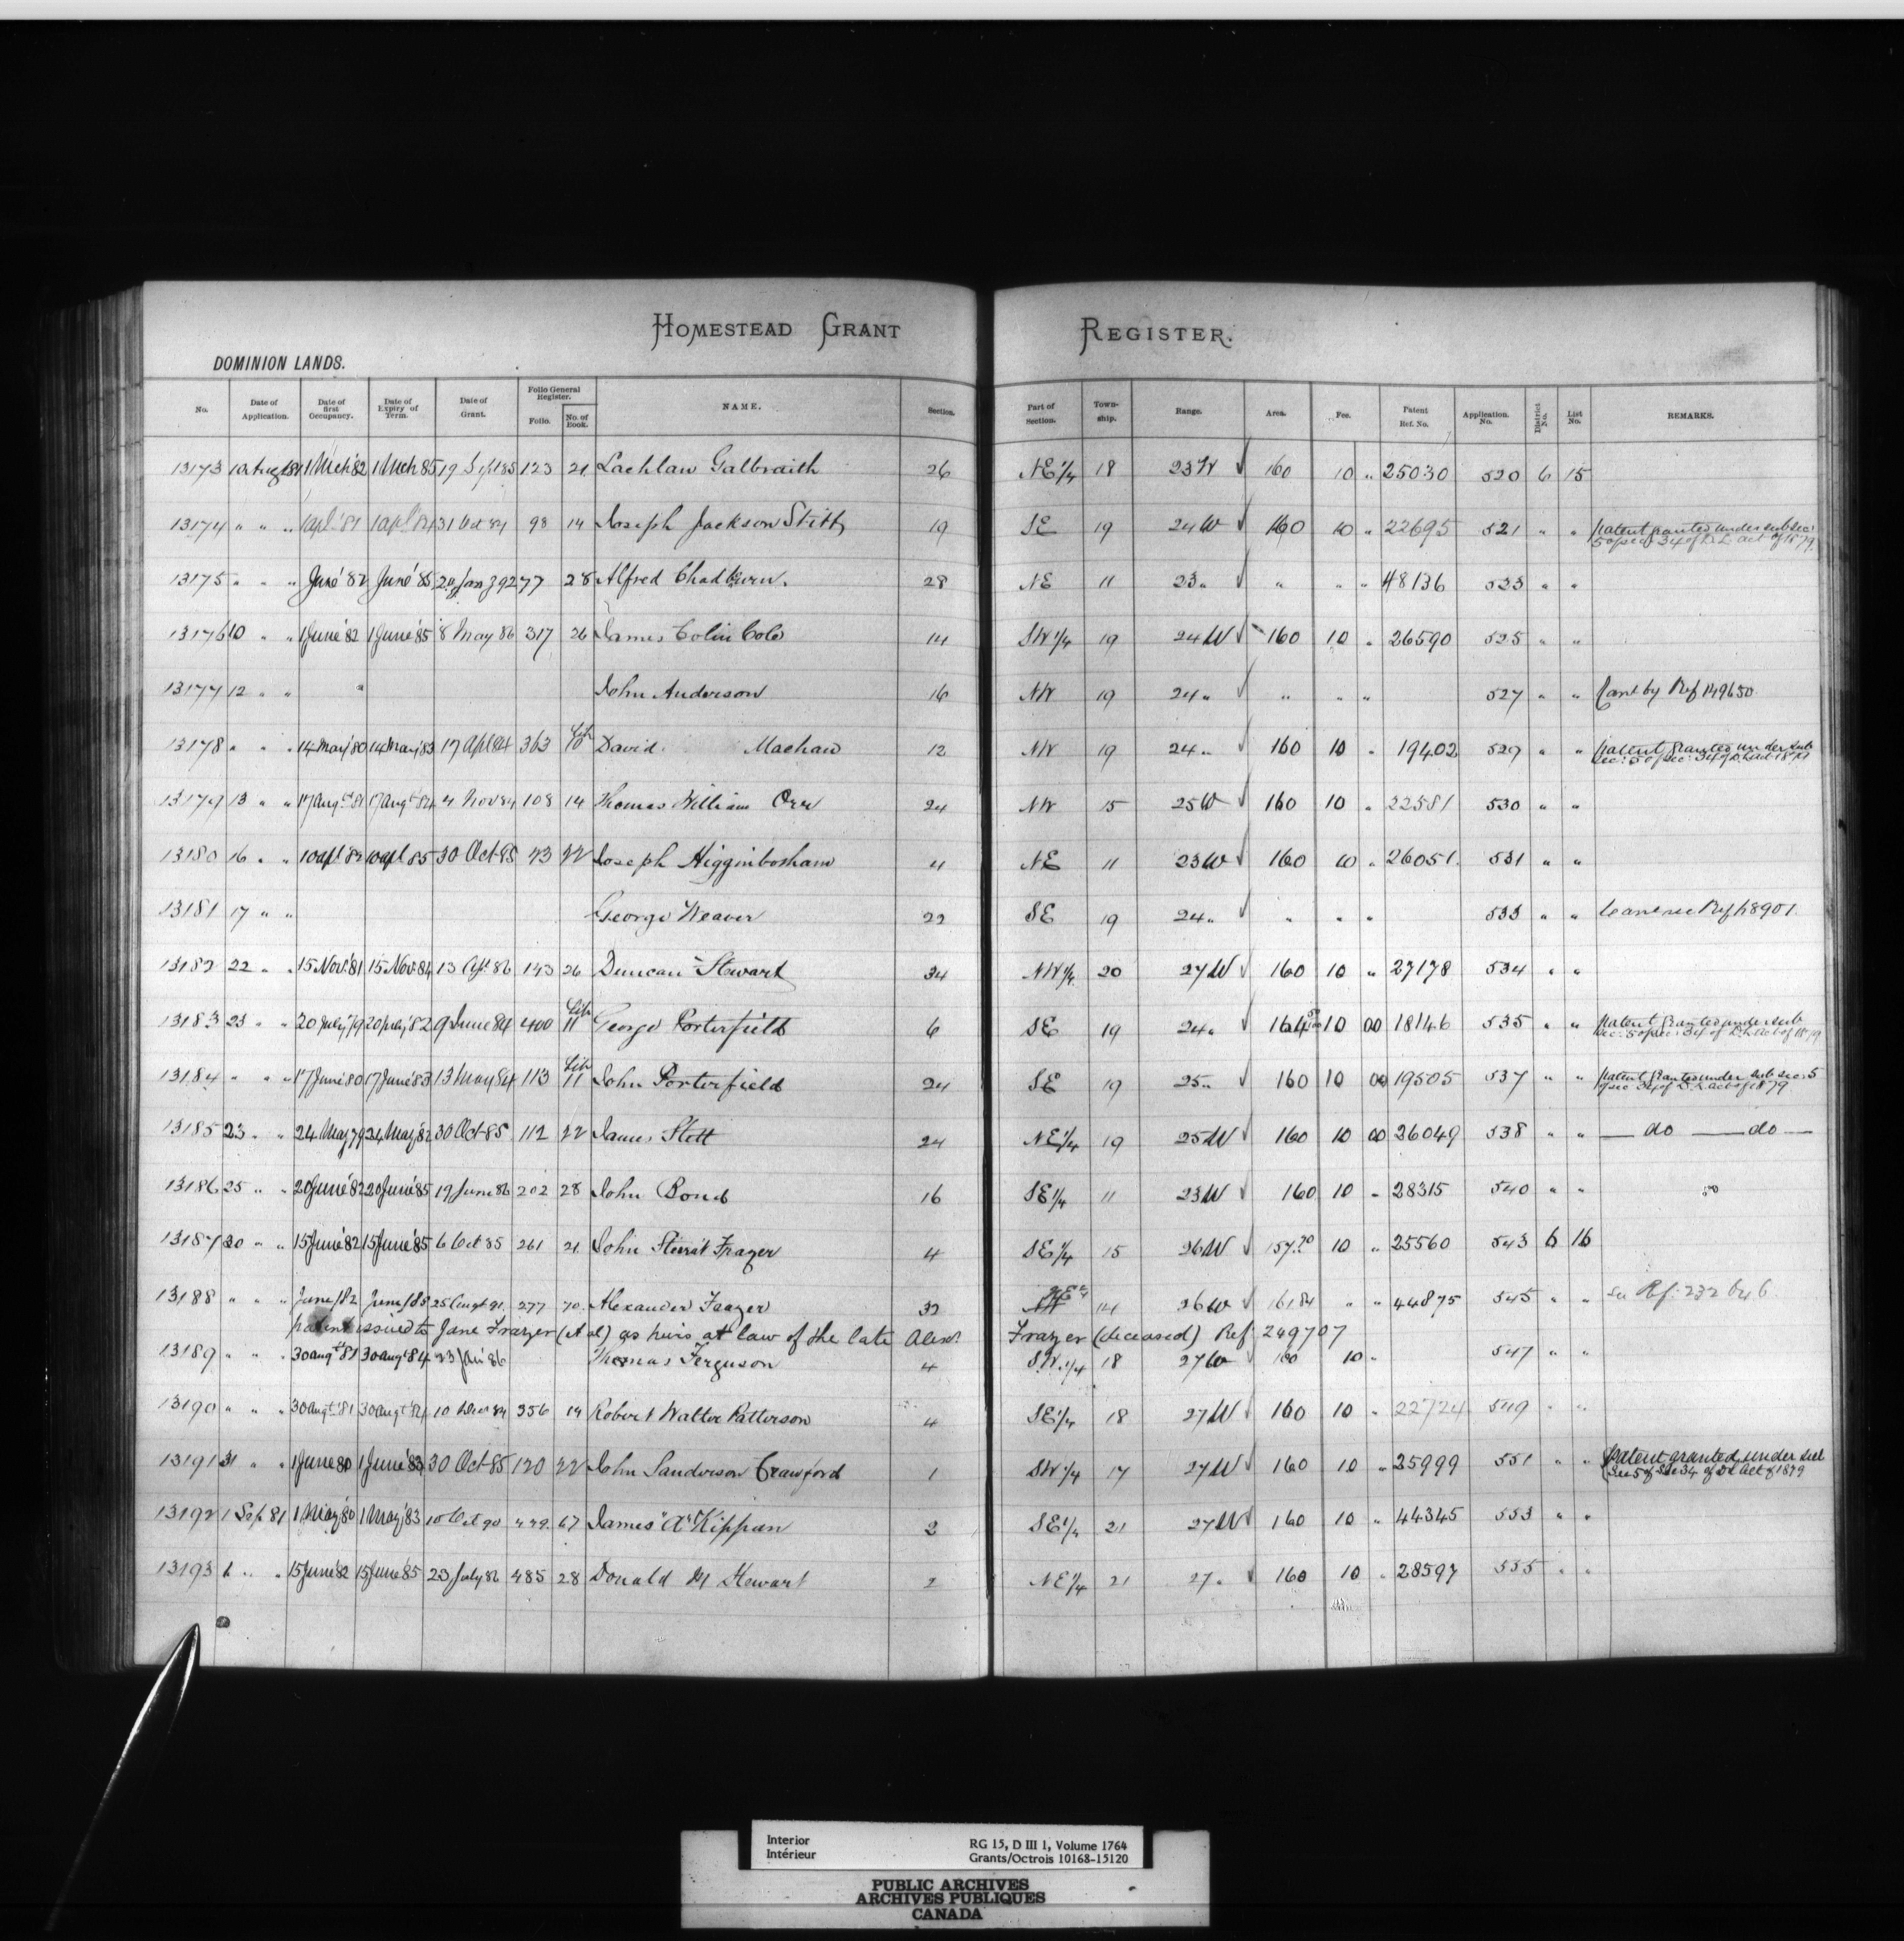 HOMESTEAD GRANT REGISTER.
DOMINION LANDS.
No. Date of Application. Date of first Occupancy. Date of Expiry of Term. Date of Grant. Folio General Register. Folio. No. of Book. NAME. Section. Part of Section. Township. Range. Area. Fee. Patent Ref. No. Application No. District No. List No. REMARKS.
13173 10 Aug 81 1 Mch '82 1 Mch 85 19 Sept 85 123 21 Lachlan Galbraith 26 NE 1/4 18 23 W 160 10 " 25030 520 6 15
13174 " " " 1 apl '81 1 apl 84 31 Oct 84 98 14 Joseph Jackson Stitt 19 SE 19 24 W 160 10 " 22695 521 " " Patent granted under subsec: 5 of sec 34 of D.L. act of 1879
13175 " " " June '82 June '85 77 28 Alfred Chadburn. 28 NE 11 23 " " " " 48136 523 " "
13176 10 " " 1 June '82 1 June '85 8 May 86 317 26 James Colin Cole 14 SW 1/4 19 24 W 160 10 " 26590 525 " "
13177 12 " " John Anderson 16 NW 19 24 " " " " 527 " " Canc by Ref 149650
13178 " " " 14 May '80 14 May '83 17 Apl 84 363 Lib 10 David Machan 12 NW 19 24 " 160 10 " 19402 529 " " Patent Granted under sub sec: 5 of sec: 34 of D.L. act 1879
13179 13 " " 17 Augt 81 17 Augt 84 4 Nov 84 108 14 Thomas William Orr 24 NW 15 25 W 160 10 " 22581 530 " "
13180 16 " " 10 apl 82 10 apl 85 30 Oct 85 43 22 Joseph Higginbotham 4 NE 11 23 W 160 10 " 26051 531 " "
13181 17 " " George Weaver 22 SE 19 24 " " " " 533 " "
13182 22 " " 15 Nov. '81 15 Nov. 84 13 143 26 Duncan Stewart 34 NW 1/4 20 27 W 160 10 " 27178 534 " "
13183 23 " " 20 July '79 20 July '82 9 June 84 400 Lib 11 George Porterfield 6 SE 19 24 " 164 10 00 18146 535 " " Patent Granted under sub sec: 5 of sec: 34 of D.L. act of 1879
13184 " " " 17 June '80 17 June '83 13 May 84 113 Lib 11 John Porterfield 24 SE 19 25 " 160 10 00 19505 537 " " Patent Granted under sub sec: 5 of sec 34 of D.L. act of 1879
13185 23 " " 24 May 79 24 May '82 30 Oct 85 112 22 James Stott 24 NE 1/4 19 25 W 160 10 00 26049 538 " " — do — do —
13186 25 " " 20 June '82 20 June '85 19 June 86 202 28 John Bond 16 SE 1/4 11 23 W 160 10 " 28315 540 " "
13187 30 " " 15 June '82 15 June '85 6 Oct 85 261 21 John Frazer 4 SE 1/4 15 26 W 157.70 10 " 25560 543 6 16
13188 " " " June/82 June/85 25 Augt 91 277 70 Alexander Frazer 32 14 26 W 161.84 " " 44875 545 " " See Ref: 232646
patent issued to Jane Frazer (et al) as heirs at law of the late Alexr Frazer (deceased) Ref: 249707
13189 " " " 30 augt '81 30 augt '84 23 Jan '86 Thomas Ferguson 4 SW 1/4 18 27 W 160 10 " 547 " "
13190 " " " 30 augt '81 30 augt '84 10 Decr 84 356 14 Robert Walter Patterson 4 SE 1/4 18 27 W 160 10 " 22724 549 " "
13191 31 " " 1 June 80 1 June '83 30 Oct 85 120 22 John Sanderson Crawford 1 SW 1/4 17 27 W 160 10 " 25999 551 " " Patent granted under sub Sec 5 of Sec 34 of D L Act of 1879
13192 1 Sep 81 1 May '80 1 May '83 10 Oct 90 67 James "A" Kippan 2 SE 1/4 21 27 W 160 10 " 44345 553 " "
13193 1 " " 15 June '82 15 June '85 23 July 86 485 28 Donald M Stewart 2 NE 1/4 21 27 " 160 10 " 28597 555 " "
Interior
Intérieur
RG 15, D III 1, Volume 1764
Grants/Octrois 10168-15120
PUBLIC ARCHIVES
ARCHIVES PUBLIQUES
CANADA